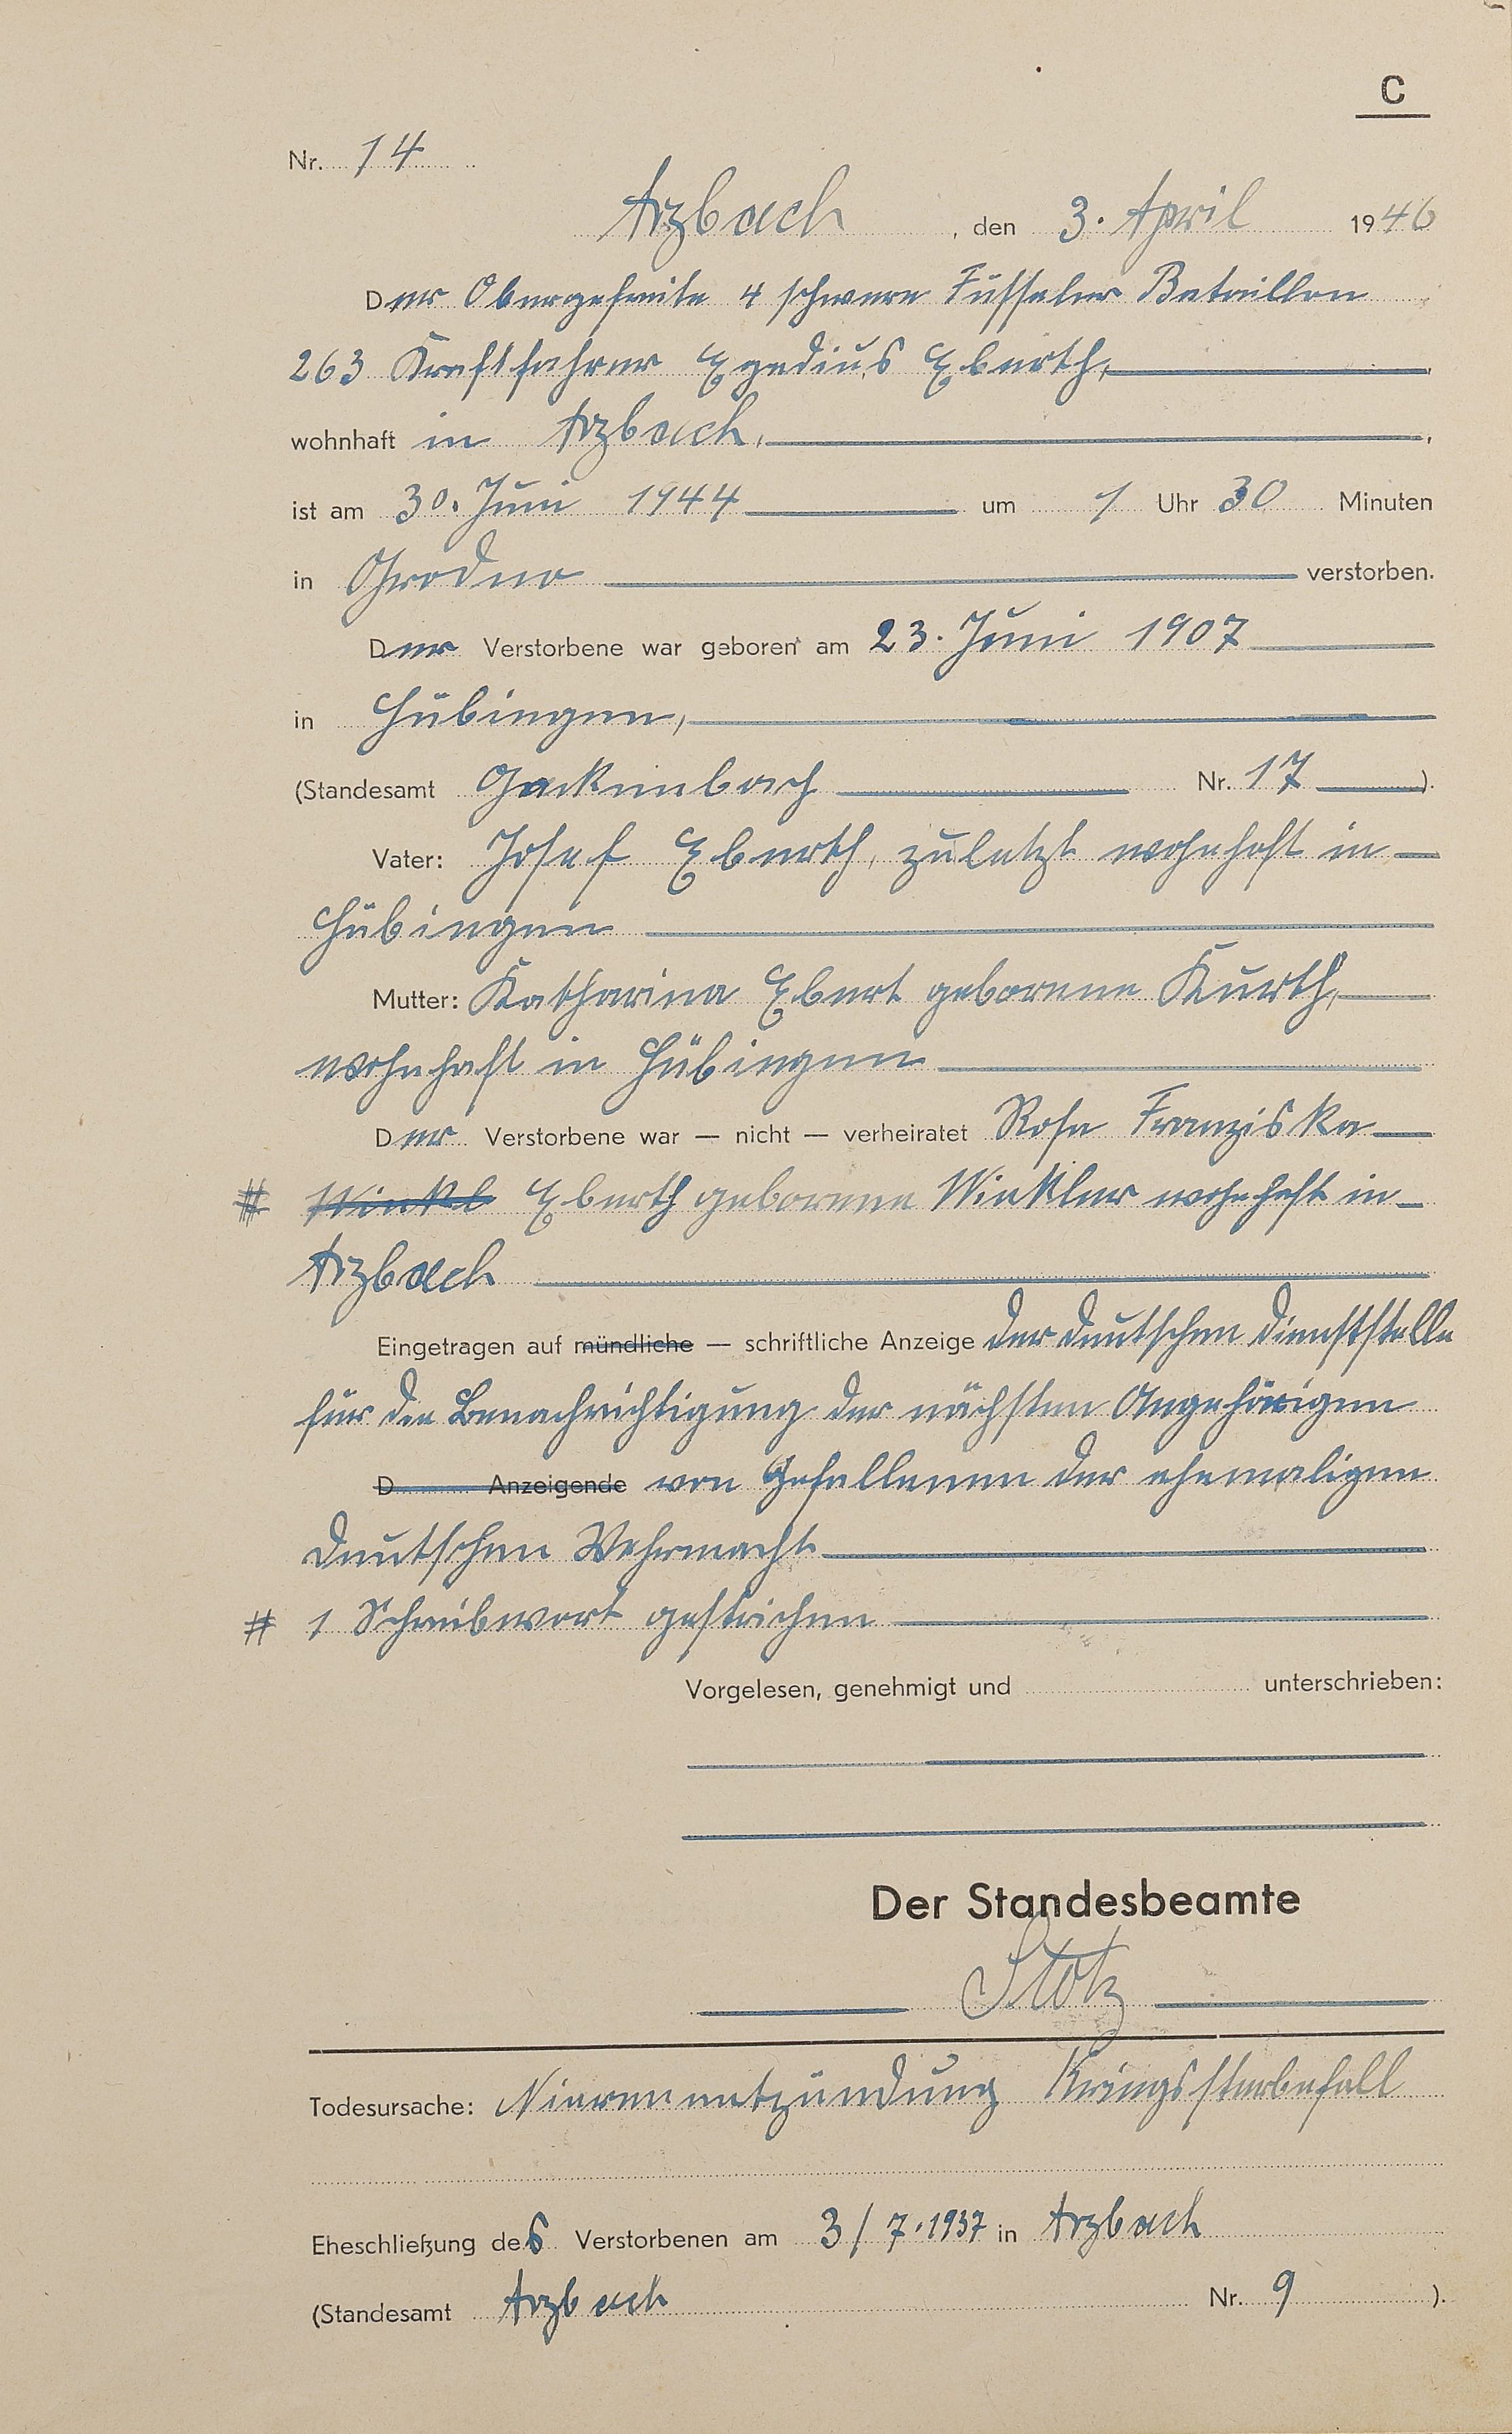 C
Nr. 14
Arzbach, den 3. April 1946
Der Obergefreite 4 schwere Füsseler Bataillon
263 Kraftfahrer Egedius Eberth,
wohnhaft in Arzbach,
ist am 30. Juni 1944 um 1 Uhr 30 Minuten
in Grodno verstorben.
Der Verstorbene war geboren am 23. Juni 1907
in Hübingen,
(Standesamt Gackenbach Nr. 17 ).
Vater: Josef Eberth, zuletzt wohnhaft in
Hübingen
Mutter: Katharina Ebert geborene Kurth,
wohnhaft in Hübingen
Der Verstorbene war — nicht — verheiratet Rosa Franziska
# Winkl Eberth geborene Winkler wohnhaft in
Arzbach
Eingetragen auf mündliche — schriftliche Anzeige der deutschen Dienststelle
für die Benachrichtigung der nächsten Angehörigen
D Anzeigende von Gefallenen der ehemaligen
deutschen Wehrmacht
# 1 Schreibwort gestrichen
Vorgelesen, genehmigt und unterschrieben:
Der Standesbeamte
Stotz
Todesursache: Nierenentzündung Kriegssterbefall
Eheschließung des Verstorbenen am 3/7.1937 in Arzbach
(Standesamt Arzbach Nr. 9 ).